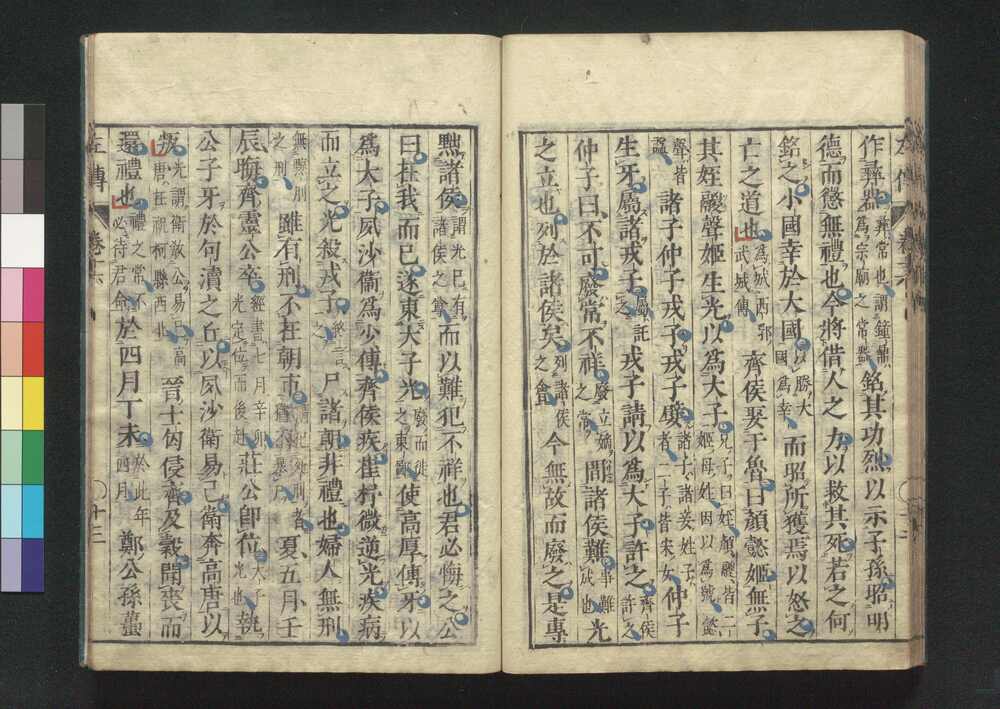 作彝器彝常也謂鐘鼎為宗廟之常器銘其功烈以示子孫昭明
德而懲無禮也今將借人之力以救其死若之何
銘之小國幸於大國以勝大國為幸而昭所獲焉以怒之
亡之道也為城西郛武城傳齊侯娶于魯曰顏懿姬無子
其姪鬷聲姬生光以為大子兄子曰姪顏鬷皆二姬母姓因以為號懿
聲皆謚諸子仲子戎子戎子嬖諸子諸妾姓子者二子皆宋女仲子
生牙屬諸戎子屬託之戎子請以為大子許之齊侯許之
仲子曰不可廢常不祥廢立嫡之常間諸侯難事難成也光
之立也列於諸侯矣列諸侯之會今無故而廢之是專
黜諸侯謂光已有諸侯之尊而以難犯不祥也君必悔之公
曰在我而已遂東大子光廢而徙之東鄙使高厚傅牙以
為大子夙沙衛為少傅齊侯疾崔杼微逆光疾病
而立之光殺戎子終言之尸諸朝非禮也婦人無刑
無黥刖之刑雖有刑不在朝市謂犯死刑者猶不暴尸夏五月壬
辰晦齊靈公卒經書七月辛卯光定位而後赴莊公即位大子光也執
公子牙於句瀆之丘以夙沙衛易己衛奔高唐以
叛光謂衛教公易己高唐在祝柯縣西北晉士匄侵齊及穀聞喪而
還禮也禮之常不必待君命於四月丁未於此年四月鄭公孫蠆
左傳 卷十六 十三